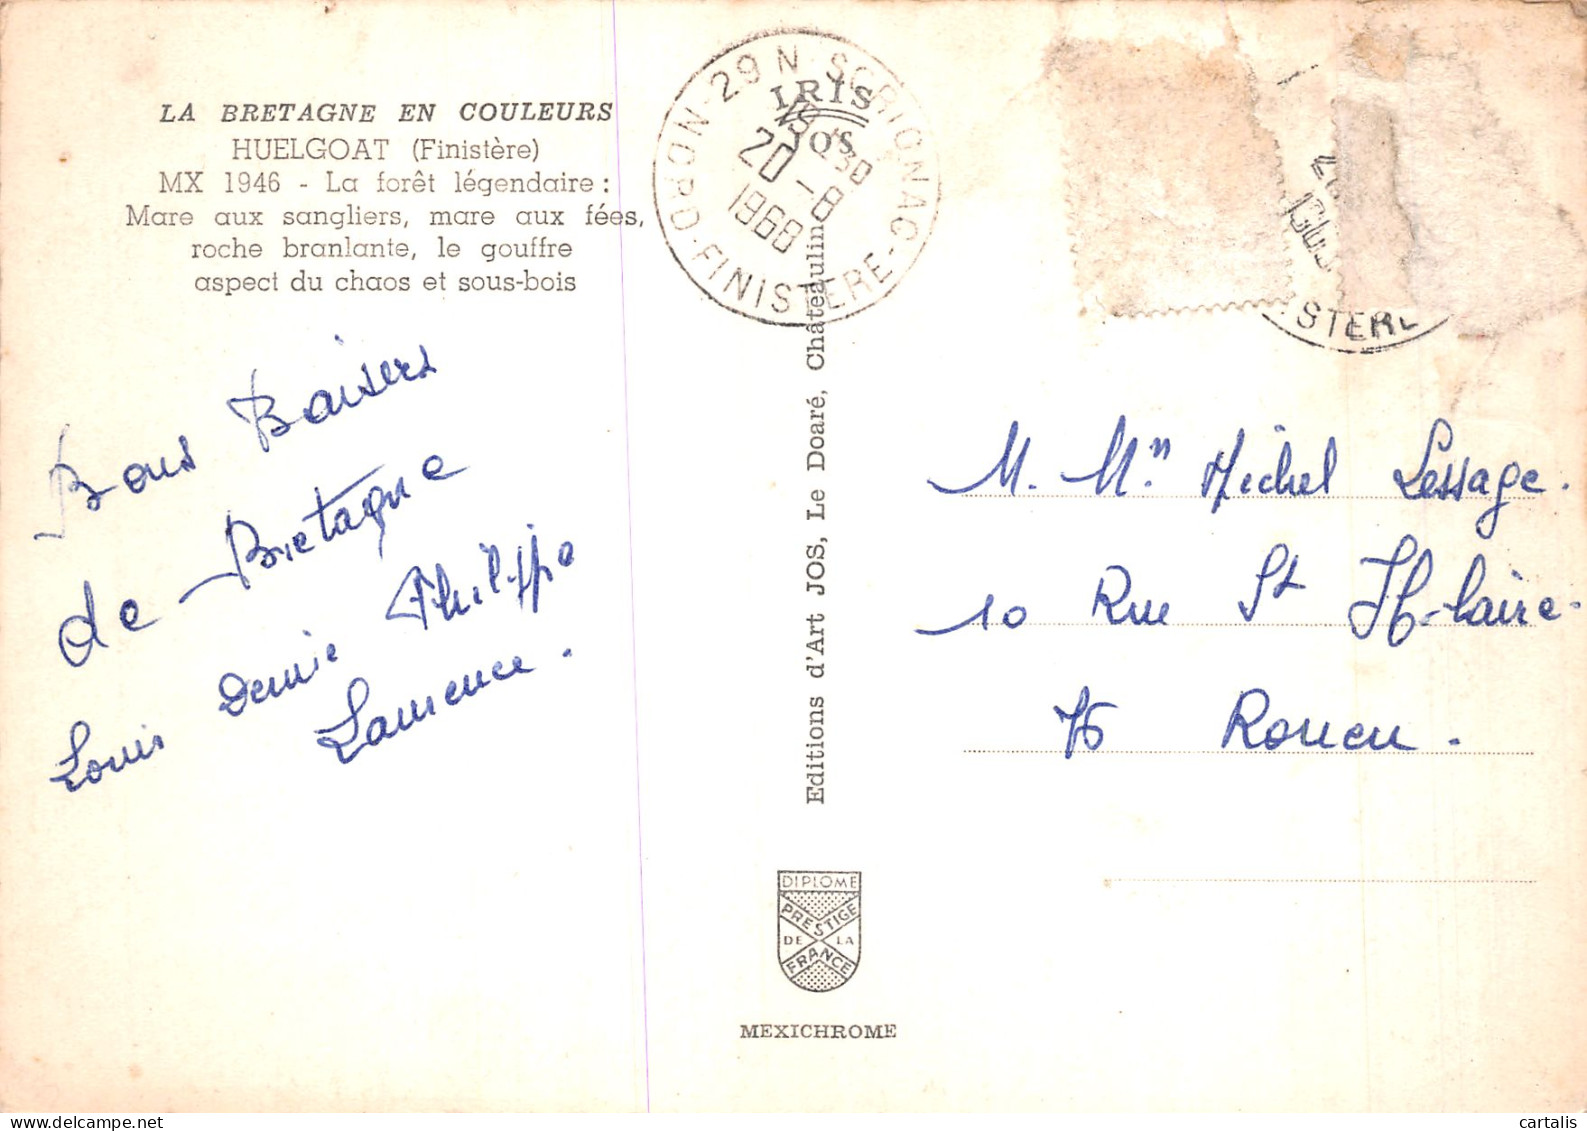 LA BRETAGNE EN COULEURS
HUELGOAT (Finistère)
MX 1946 - La forêt légendaire :
Mare aux sangliers, mare aux fées,
roche branlante, le gouffre
aspect du chaos et sous-bois
Bons Baisers
de Bretagne
Louis Denise Philippe
Laurence.
IRIS
JOS
29 N · SCRIGNAC
20 - 8
1968
FINISTERE
STERE
Editions d'Art JOS, Le Doaré, Châteaulin
M. Mm Michel Lessage.
10 Rue St Hilaire.
76 Rouen.
DIPLOME
PRESTIGE
DE LA
FRANCE
MEXICHROME
cartalis